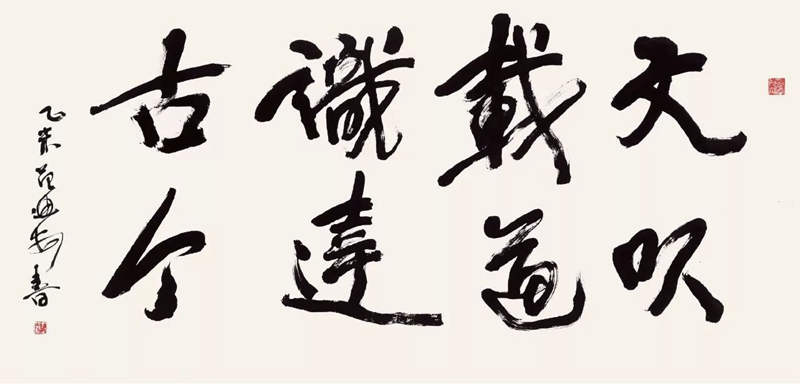 文以
載道
識達
古今
乙未
書